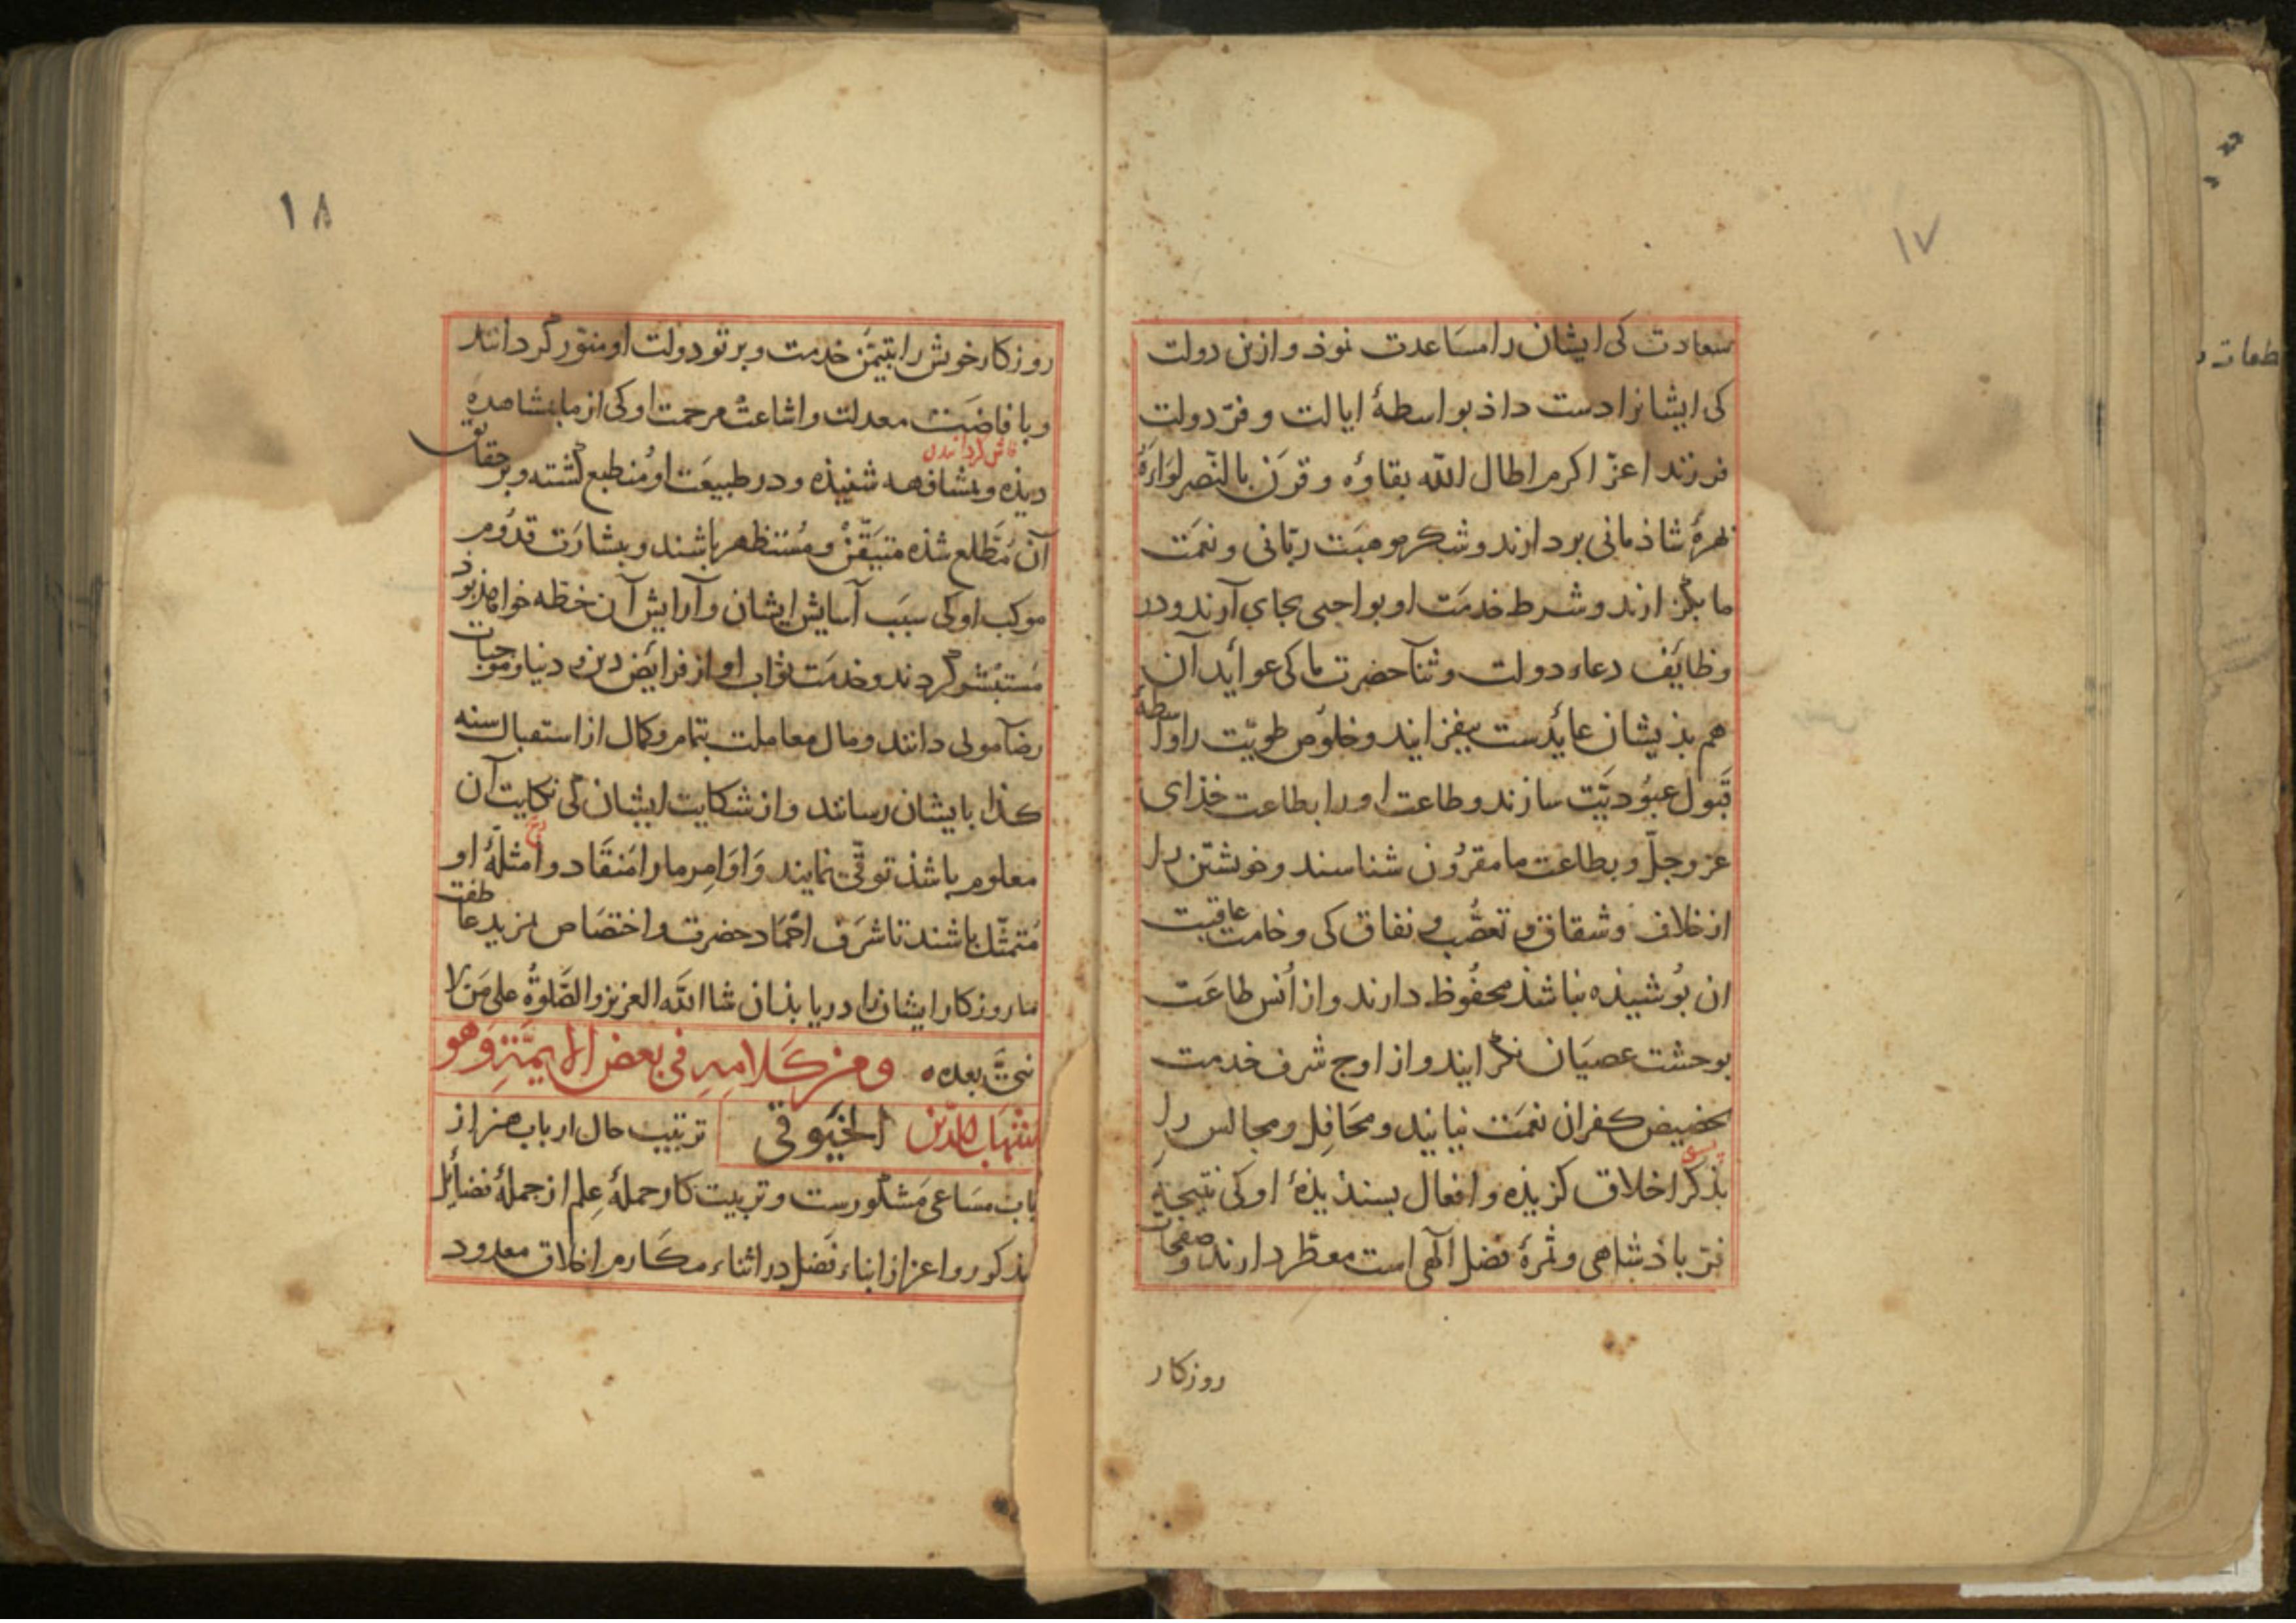 ١٧
سعادت کی ایشان را مساعدت نوذ و ازین دولت
کی ایشانرا دست داذ بواسطهٔ ایالت و فرّ دولت
فرزند اعزّ اکرم اطال اللّه بقاؤه و قرن بالنّصر لواءهٔ
بهرهٔ شاذمانی بردارند و شکر موهبت ربّانی و نعمت
ما بگزارند و شرط خدمت او بواجبی بجای آرند و در
وظایف دعاء دولت و ثنآ حضرت ما کی عواید آن
هم بذیشان عایدست بیفزایند و خلوص طویّت را واسطهٔ
قبول عبودیّت سازند و طاعت او را بطاعت خذای
عز و جلّ و بطاعت ما مقرون شناسند و خویشتن را
از خلاف و شقاق و تعصّب و نفاق کی وخامت عاقبت
ان بوشیذه نباشذ محفوظ دارند و از اُنس طاعت
بوحشت عصیان نگرایند و از اوج شرف خدمت
بحضیض کفران نعمت نیایند و محافل و مجالس را
بذکر اخلاق کزیذه و افعال بسندیذهٔ او کی نتیجهٔ
فرّ باذشاهی و ثمرهٔ فضل آلهی است معطّر دارند و صفحات
روزکار
١٨
روزکار خویش را بتیمّن خدمت و برتو دولت او منوّر گردانند
و بافاضت معدلت و اشاعت مرحمت او کی از ما بمشاهده
فاش گردانیدن
دیذه و بمشافهه شنیذه و در طبیعت او منطبع گشته و بر حقایق
آن مطّلع شذه متیقّن و مستظهر باشند و ببشارت قدوم
موکب او کی سبب آسایش ایشان و آرایش آن خطّه خواهذ بوذ
مستبشر گردند و خدمت نواب او از فرایض دین و دنیا و موجبات
رضآ مولی دانند و مال معاملت بتمام و کمال از استقبال سنه
کذا بایشان رسانند و از شکایت ایشان کی نکایت آن
معلوم باشذ توقّی نمایند و اوامر ما را منقاد و امثلهٔ او
متمثّل باشند تا شرف احماد حضرت و اختصاص بمزید عاطفت
ما روزکار ایشان را دریابذ ان شا اللّه العزیز و الصّلوةُ علی من لا
نبیّ بعده ٥ ومن کلامه فی بعض الایمّة وهو
شهاب الدّین الخیوقی ترتیب حال ارباب هنر از
باب مساعی مشکورست و تربیت کار حملهٔ علم از جملهٔ فضایل
مذکور و اعزاز ابناء فضل در اثناء مکارم اخلاق معدود